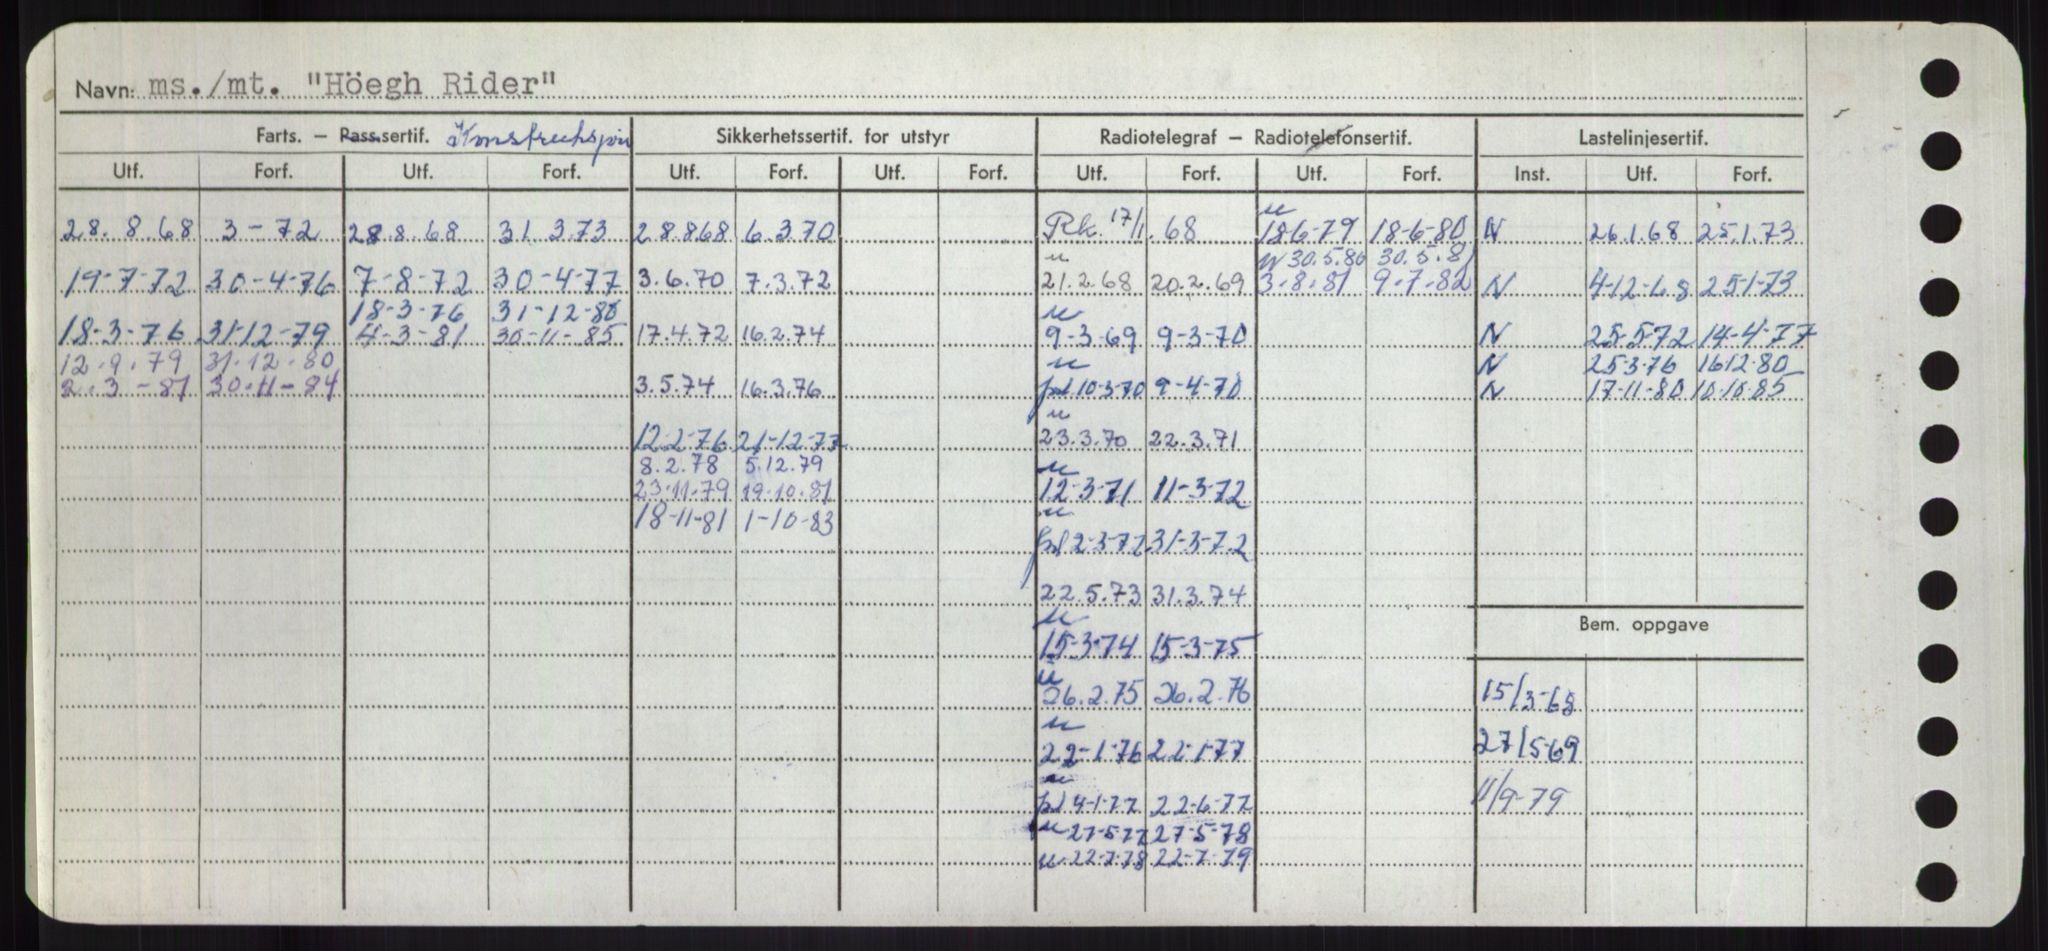 Navn: ms./mt. "Höegh Rider"
Farts. – Passsertif. Sikkerhetssertif. for utstyr Radiotelegraf – Radiotelefonsertif. Lastelinjesertif.
Utf. Forf. Utf. Forf. Utf. Forf. Utf. Forf. Utf. Forf. Utf. Forf. Inst. Utf. Forf.
28.8.68 3-72 28.8.68 31.3.73 28.8.68 6.3.70 Rk. 17/1.68 18-6-79 18-6-80 N 26.1.68 25.1.73
30.5.80 30.5.81
19-7-72 30-4-76 7-8-72 30-4-77 3.6.70 7.3.72 21.2.68 20.2.69 3.8.81 9.7.82 N 4-12-68 25-1-73
18-3-76 31-12-80
18-3-76 31-12-79 4-3-81 30-11-85 17.4.72 16.2.74 9-3-69 9-3-70 N 25-5-72 14-4-77
12.9.79 31.12.80 N 25-3-76 16.12.80
2.3-81 30-11-84 3.5.74 16.3.76 10-3-70 9-4-70 N 17-11-80 10-10-85
12-2-76 21-12-77 23.3.70 22.3.71
8.2.78 5.12.79
23-11-79 19-10-81 12-3-71 11-3-72
18-11-81 1-10-83
2-3-72 31-3-72
22.5.73 31.3.74
Bem. oppgave
15-3-74 15-3-75
26.2.75 26.2.76 15/3-68
22-1-76 22-1-77 27/5-69
4-1-77 22-6-77 11/9-79
27-5-77 27-5-78
22-7-78 22-7-79